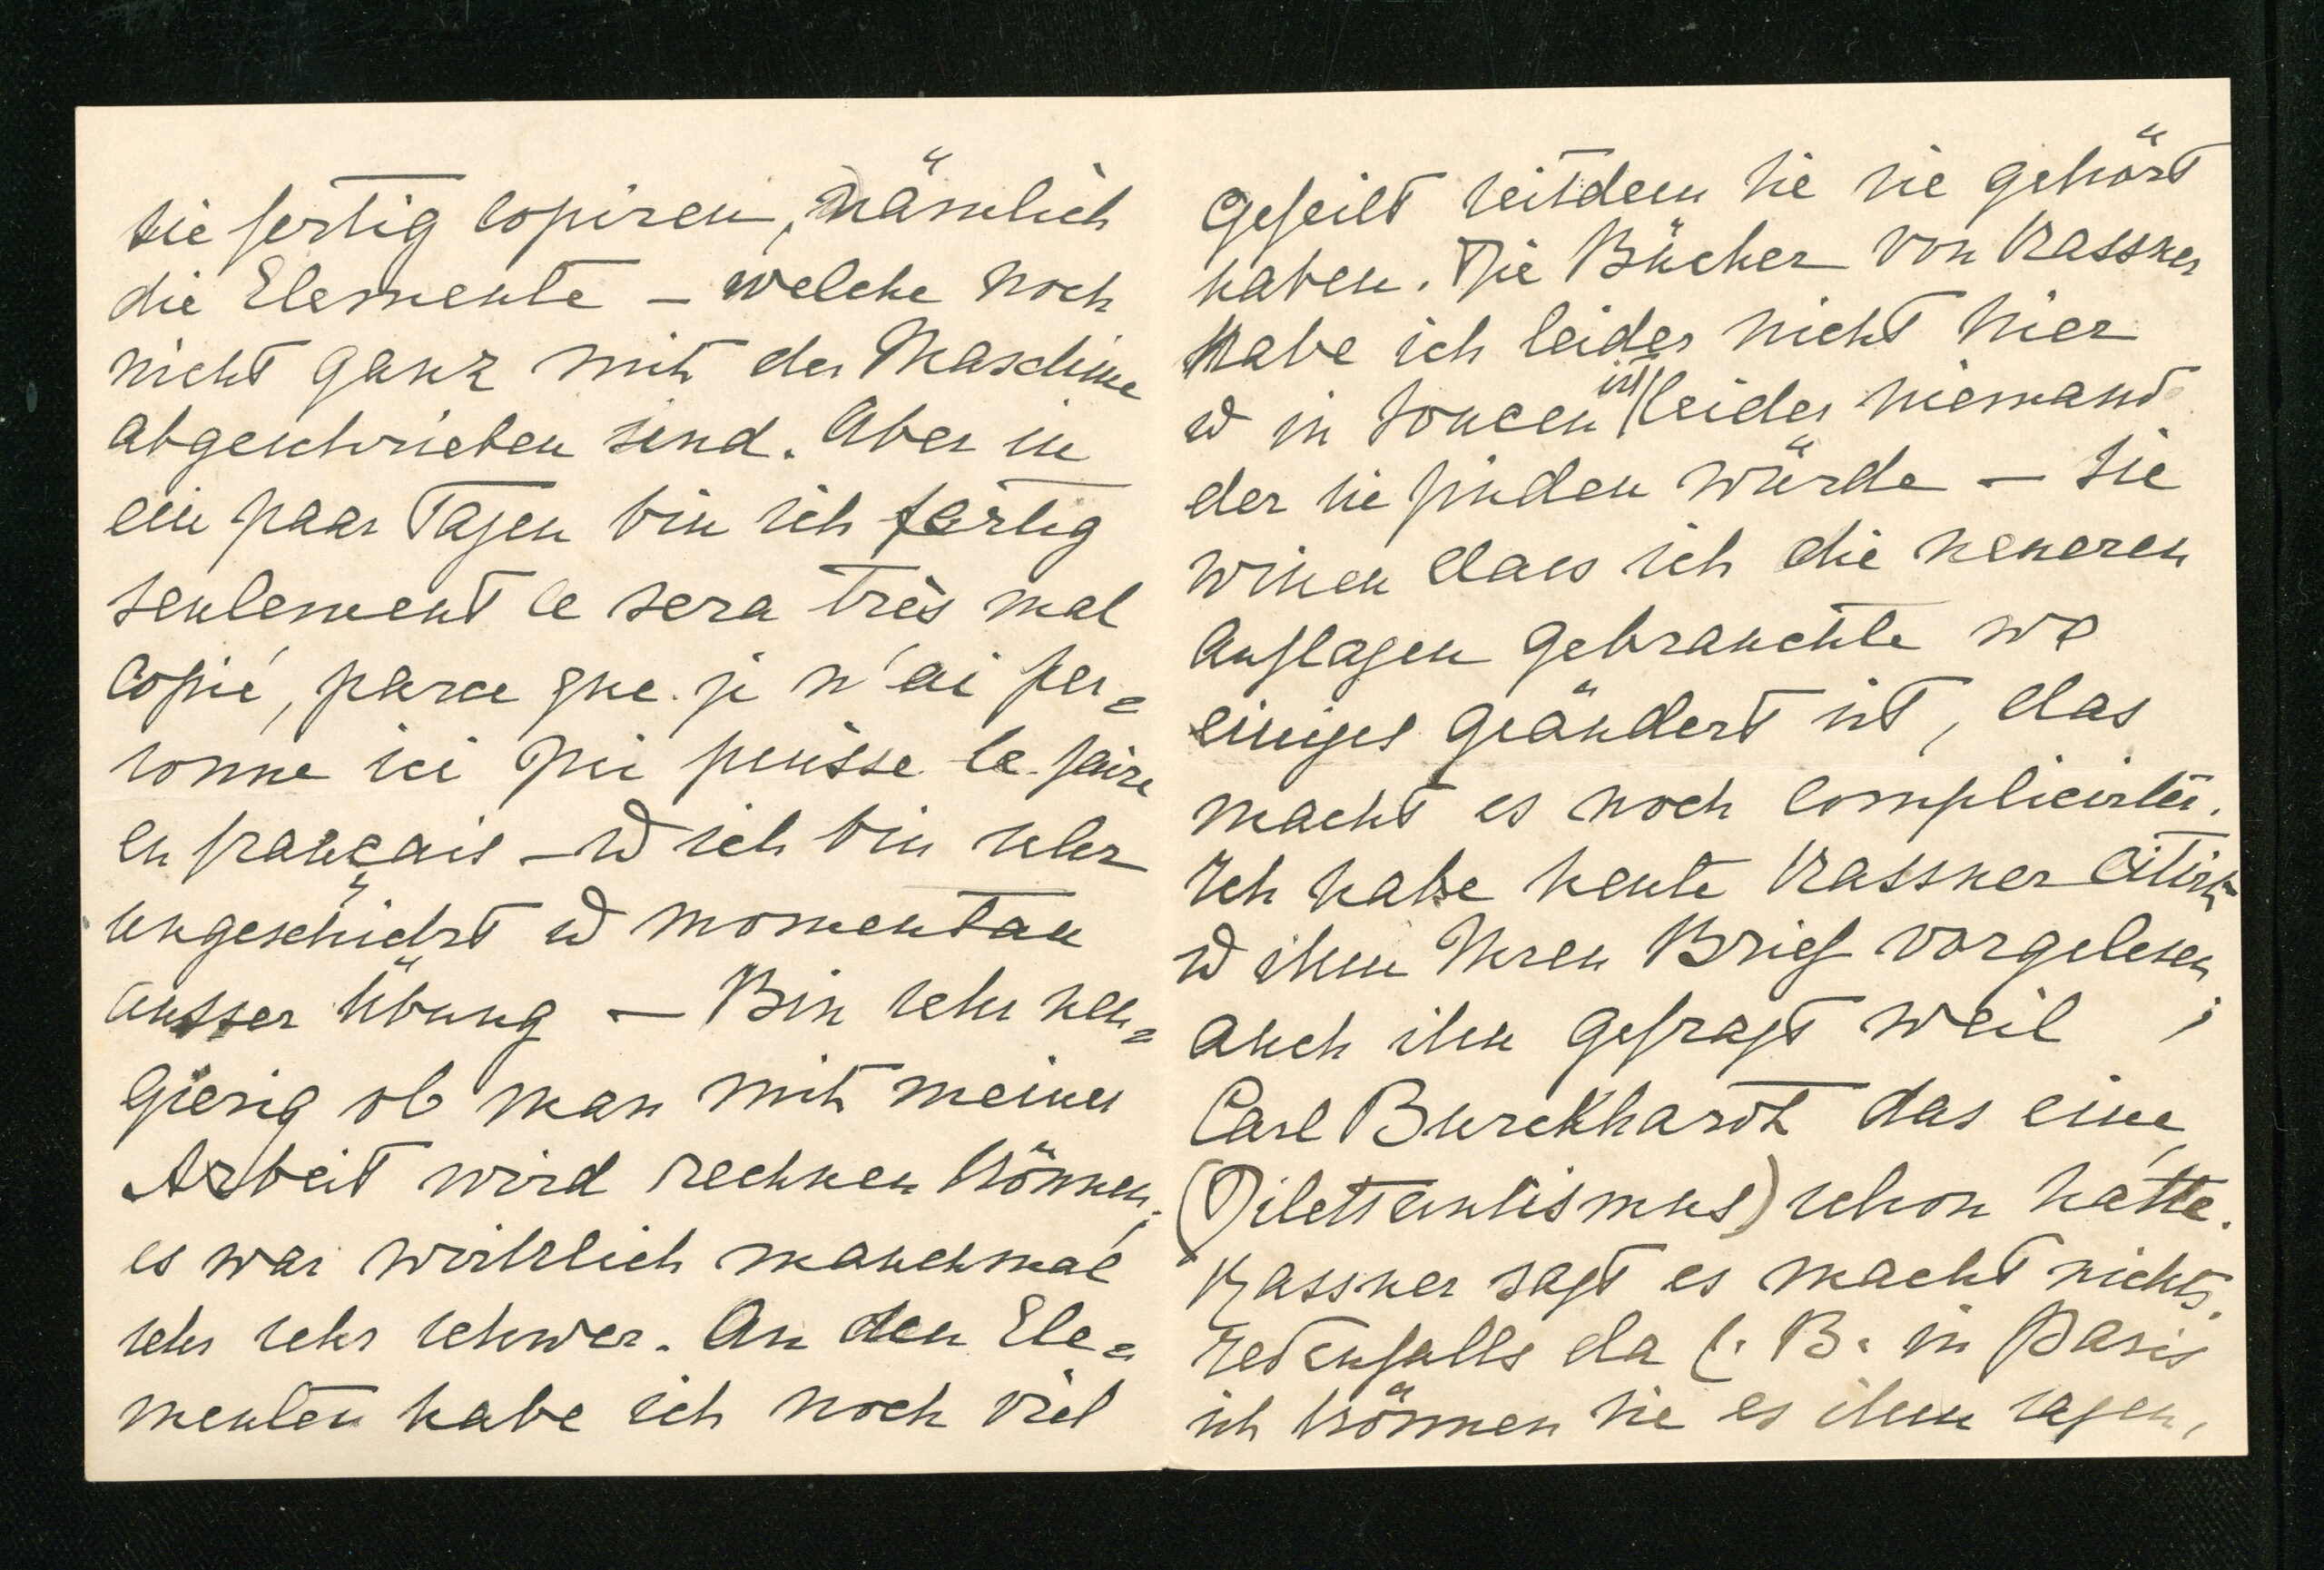 sie fertig copiren, nämlich
die Elemente – welche noch
nicht ganz mit der Maschine
abgeschrieben sind. Aber in
ein paar Tagen bin ich fertig
seulement ce sera très mal
copié, parce que je n'ai per=
sonne ici qui puisse le faire
en français – u ich bin sehr
ungeschickt u momentan
ausser Übung – Bin sehr neu=
gierig ob man mit meiner
Arbeit wird rechnen können,
es war wirklich manchmal
sehr sehr schwer. An den Ele=
menten habe ich noch viel
gefeilt seitdem Sie sie gehört
haben. Die Bücher von Kassner
habe ich leider nicht hier
u in Loucen ist leider niemand
der sie finden würde – Sie
wissen dass ich die neueren
Auflagen gebrauchte wo
einiges geändert ist, das
macht es noch complicirter.
Ich habe heute Kassner citirt
u ihm Ihren Brief vorgelesen,
auch ihn gefragt weil
Carl Burckhardt das eine
(Dilettantismus) schon hatte.
Kassner sagt es macht nichts.
Jedenfalls da C. B. in Paris
ist können Sie es ihm sagen,